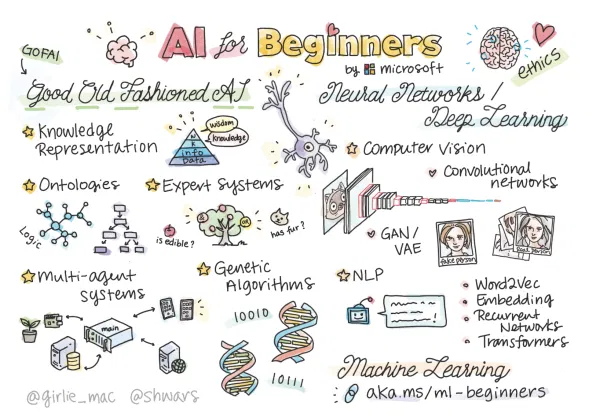 GOFAI
AI for Beginners
by microsoft
ethics
Good Old Fashioned AI
Knowledge
Representation
wisdom
knowledge
info
Data
Ontologies
Logic
Expert Systems
is edible?
has fur?
Multi-agent
systems
main
Genetic
Algorithms
10010
10111
Neural Networks /
Deep Learning
Computer Vision
Convolutional
networks
GAN/
VAE
fake person
Real Person
NLP
Word2Vec
Embedding
Recurrent
Networks
Transformers
Machine Learning
aka.ms/ml-beginners
@girlie_mac @shwars